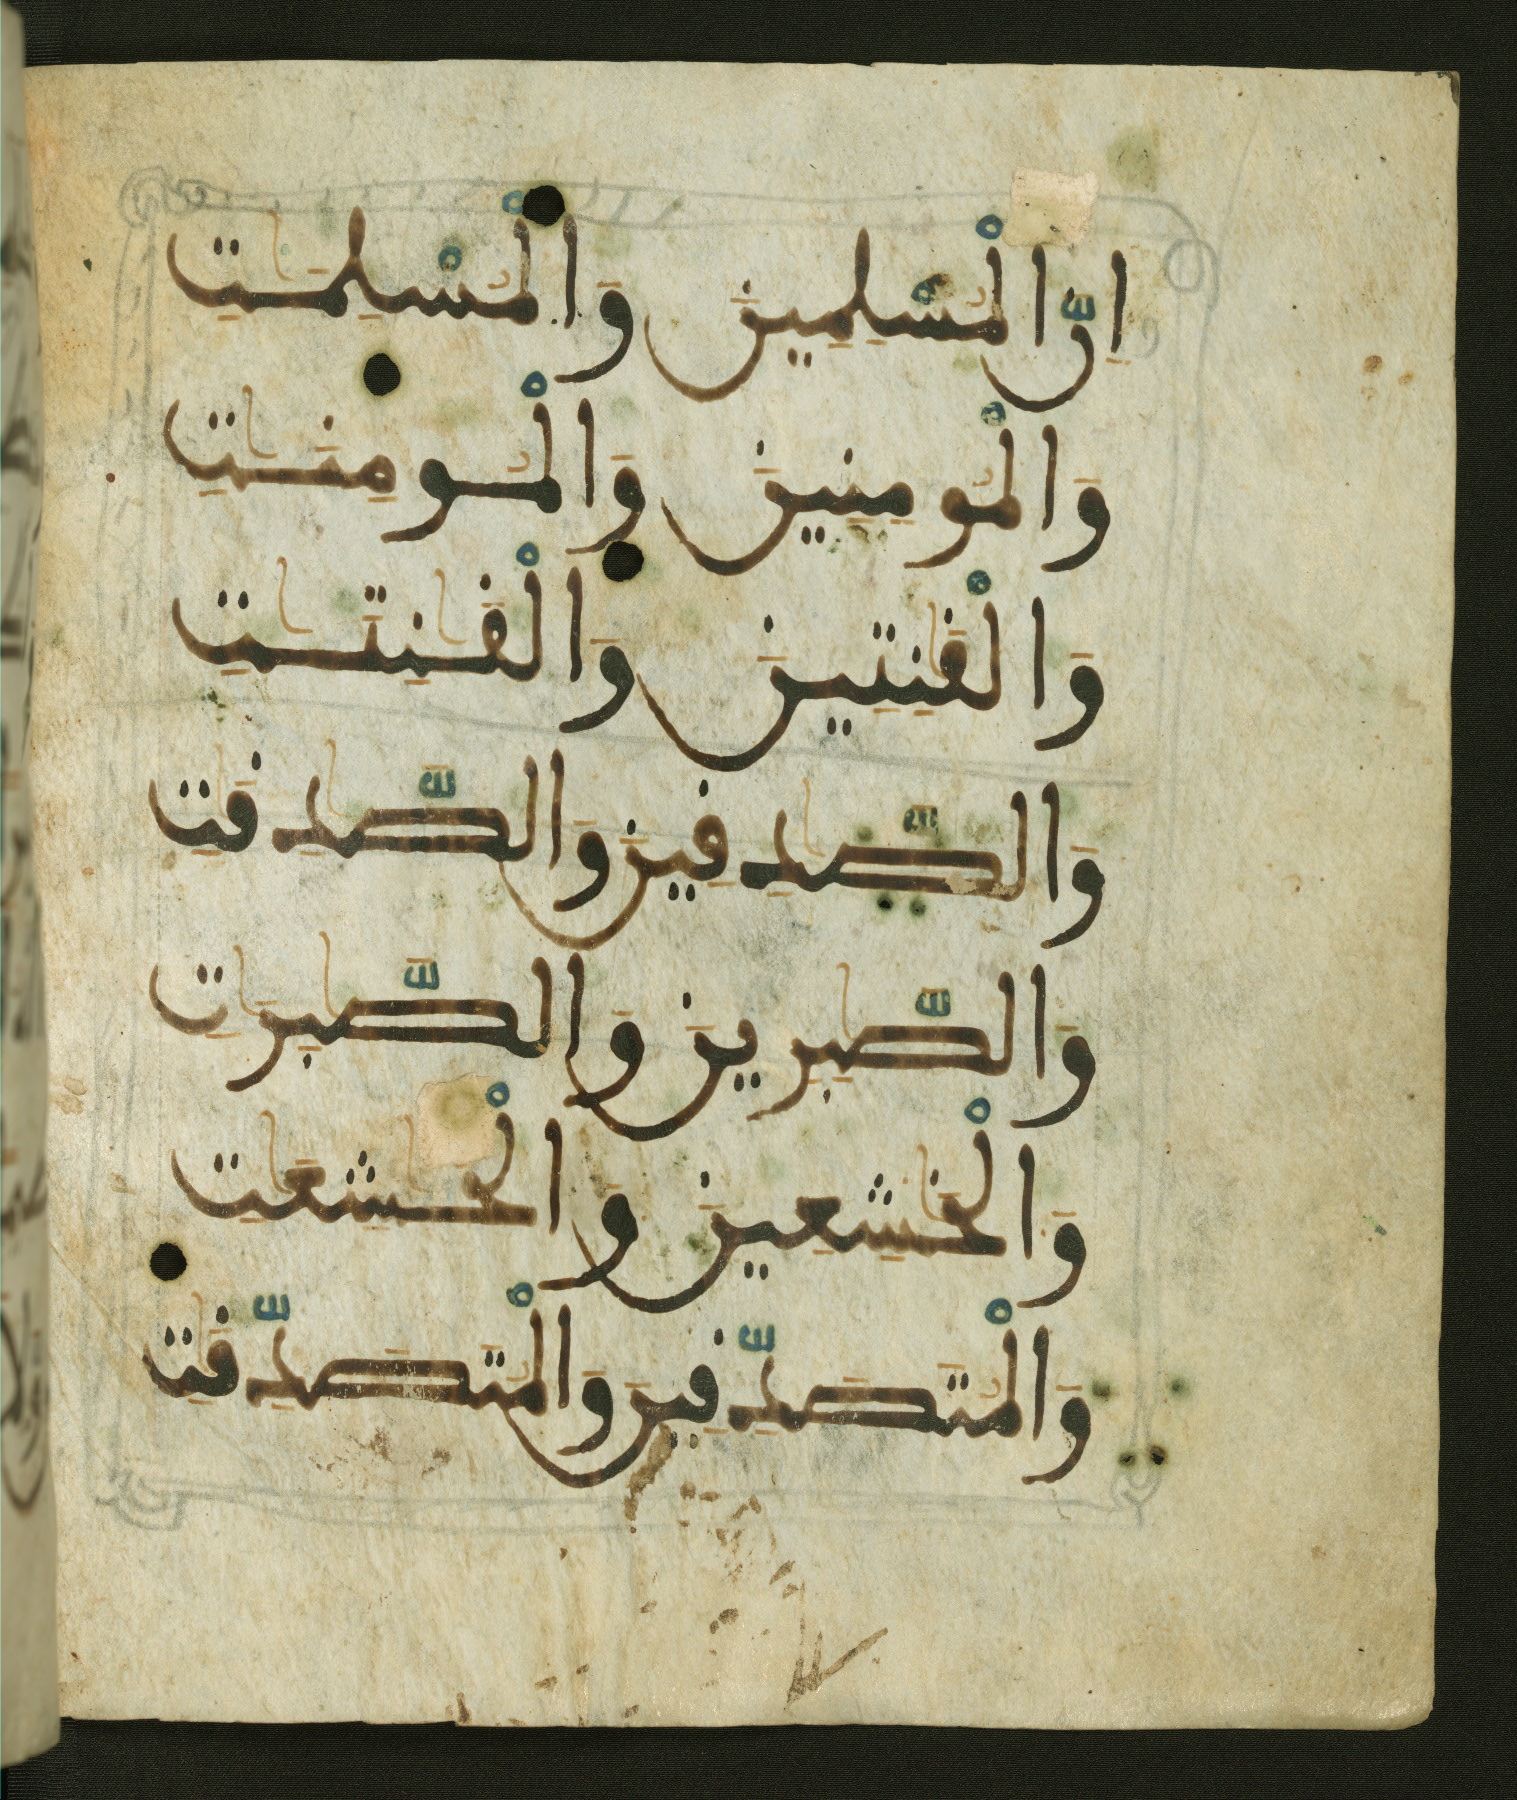 اِنَّ اَ۬لْمُسْلِمِينَ وَالْمُسْلِمَٰتِ
وَالْمُومِنِينَ وَالْمُومِنَٰتِ
وَالْقَٰنِتِينَ وَالْقَٰنِتَٰتِ
وَالصَّٰدِقِينَ وَالصَّٰدِقَٰتِ
وَالصَّٰبِرِينَ وَالصَّٰبِرَٰتِ
وَالْخَٰشِعِينَ وَالْخَٰشِعَٰتِ
وَالْمُتَصَدِّقِينَ وَالْمُتَصَدِّقَٰتِ